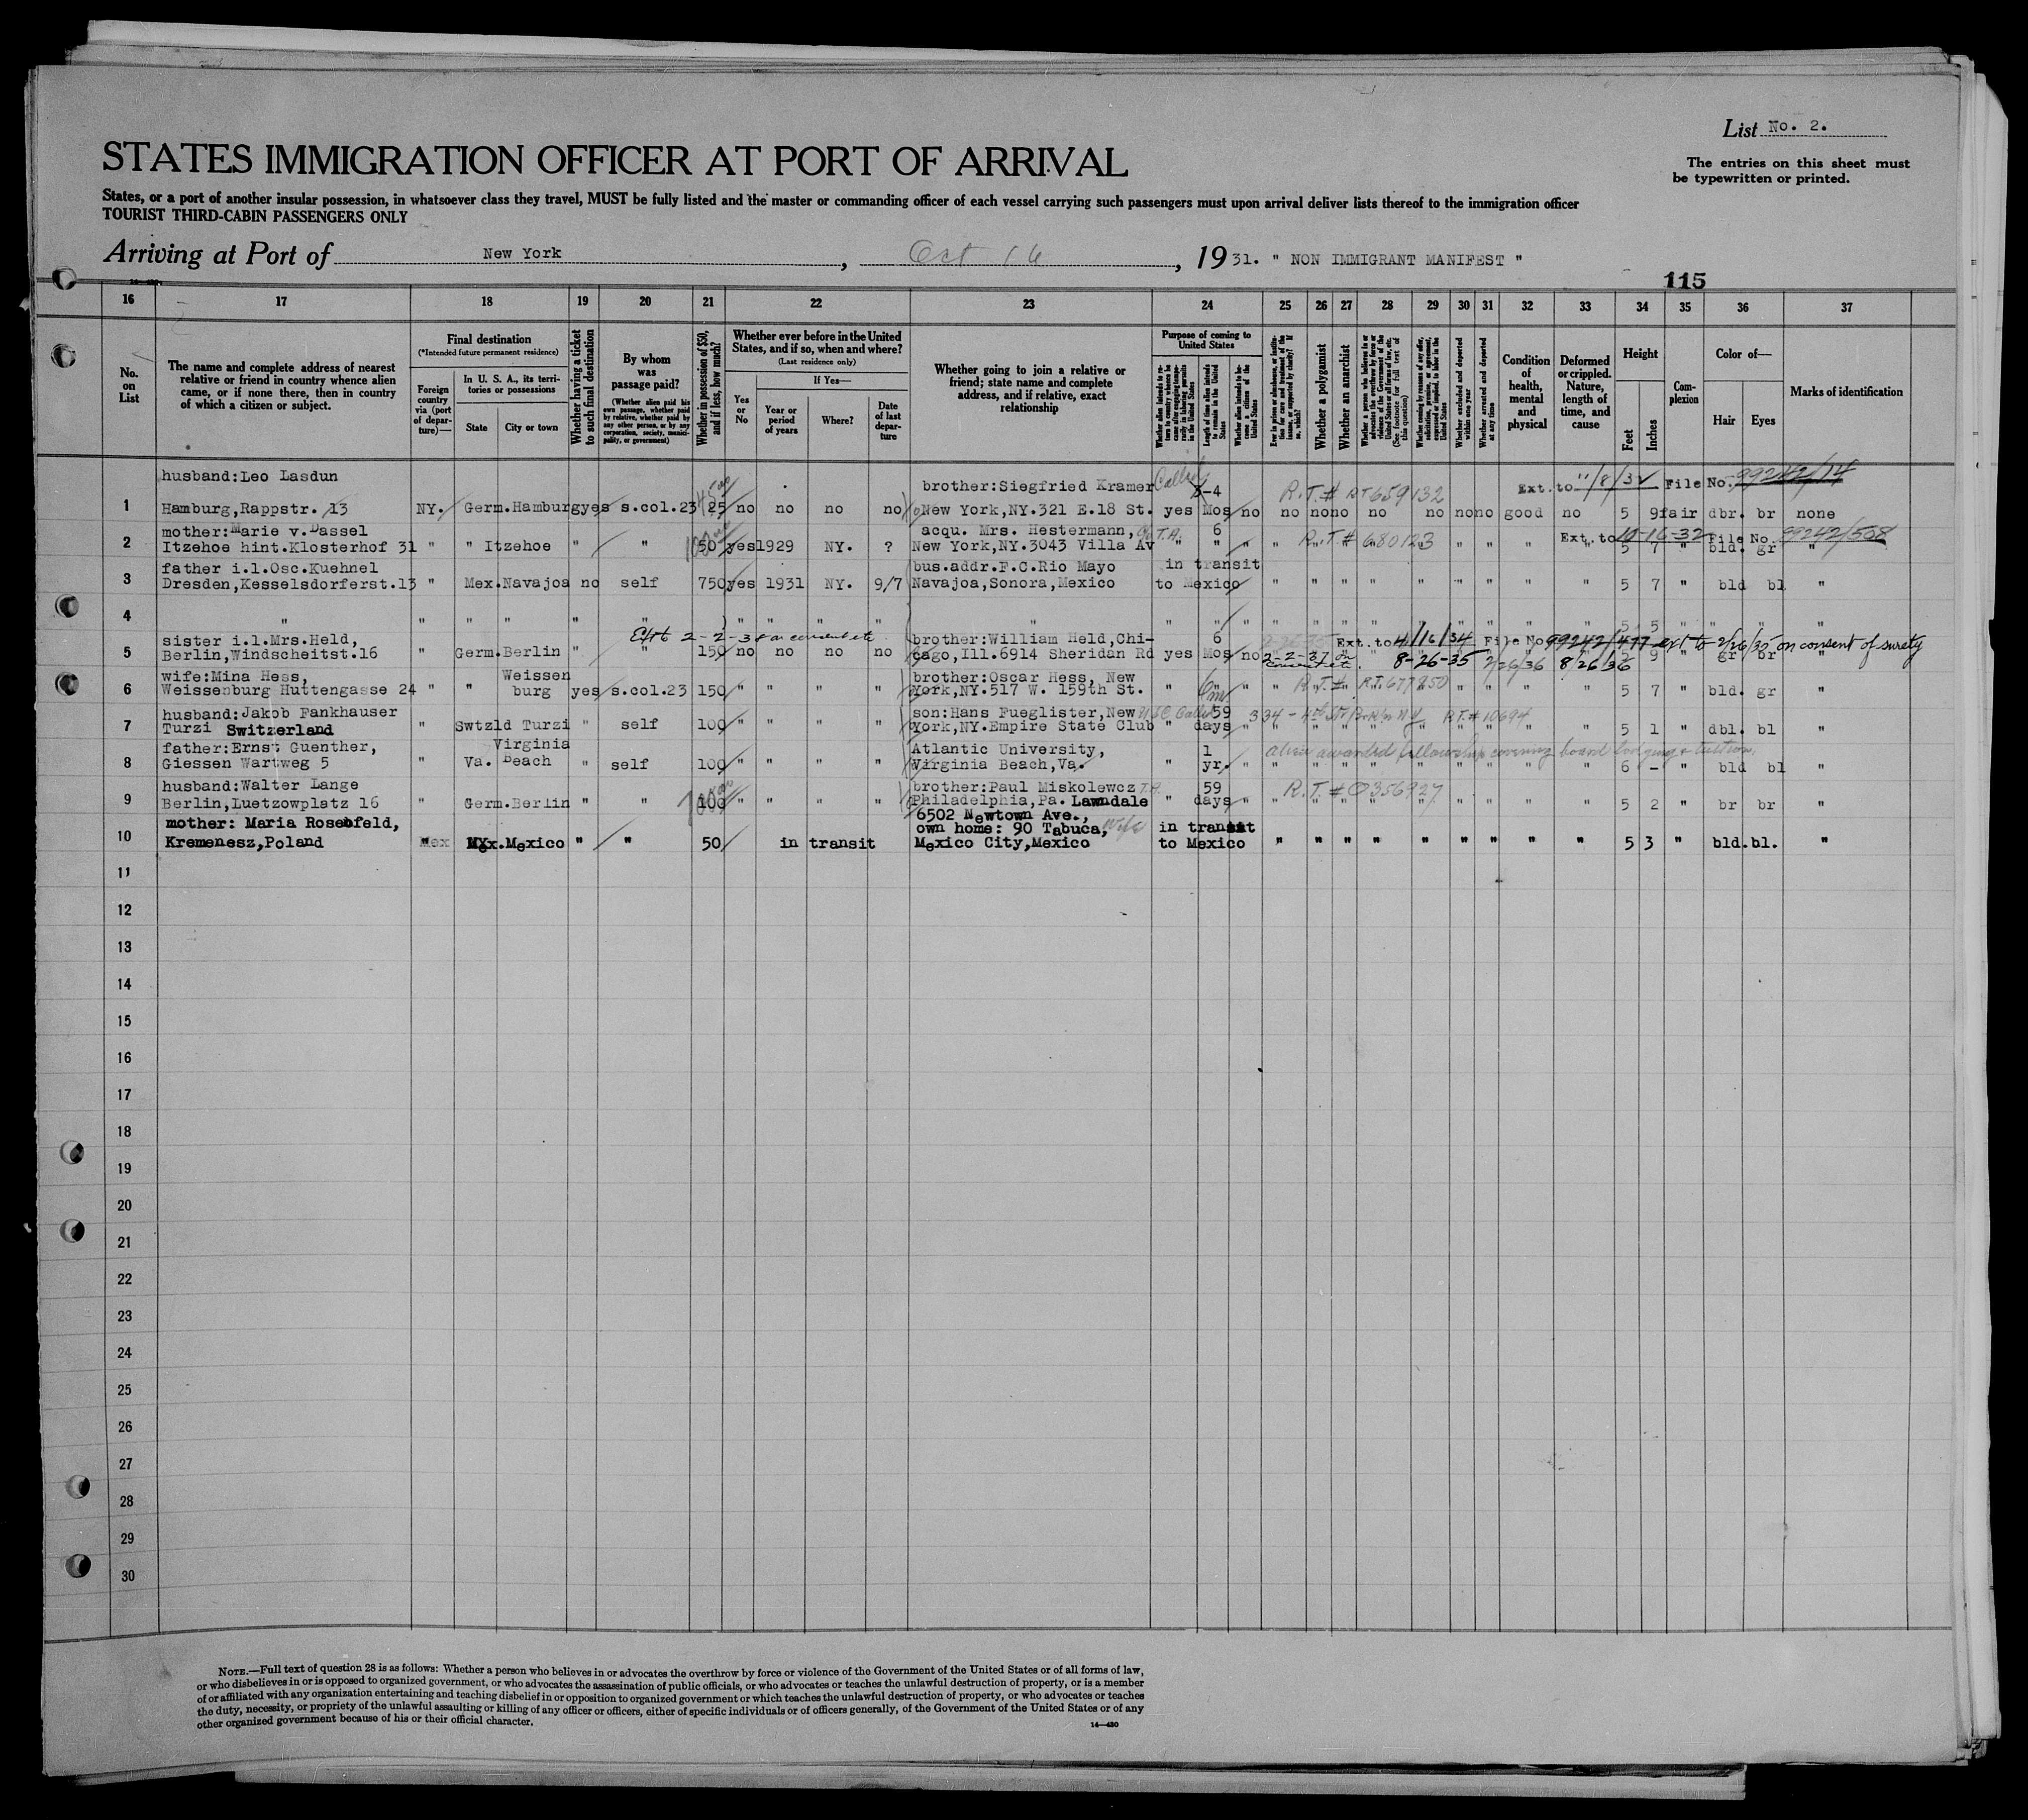 List No. 2.
STATES IMMIGRATION OFFICER AT PORT OF ARRIVAL
The entries on this sheet must
be typewritten or printed.
States, or a port of another insular possession, in whatsoever class they travel, MUST be fully listed and the master or commanding officer of each vessel carrying such passengers must upon arrival deliver lists thereof to the immigration officer
TOURIST THIRD-CABIN PASSENGERS ONLY
Arriving at Port of New York, Oct 16, 1931. " NON IMMIGRANT MANIFEST "
115
16 17 18 19 20 21 22 23 24 25 26 27 28 29 30 31 32 33 34 35 36 37
No. on List
The name and complete address of nearest
relative or friend in country whence alien
came, or if none there, then in country
of which a citizen or subject.
Final destination
(*Intended future permanent residence)
Foreign country via (port of departure)—
In U. S. A., its territories or possessions
State City or town
Whether having a ticket to such final destination
By whom was passage paid?
(Whether alien paid his own passage, whether paid by relative, whether paid by any other person, or by any corporation, society, municipality, or government)
Whether in possession of $50, and if less, how much?
Whether ever before in the United
States, and if so, when and where?
(Last residence only)
Yes or No
If Yes—
Year or period of years
Where?
Date of last departure
Whether going to join a relative or
friend; state name and complete
address, and if relative, exact
relationship
Purpose of coming to
United States
Length of time alien intends to remain in the United States
Whether alien intends to become a citizen of the United States
Whether a polygamist
Whether an anarchist
Whether excluded and deported within one year
Whether arrested and deported at any time
Condition of health, mental and physical
Deformed or crippled. Nature, length of time, and cause
Height
Feet Inches
Complexion
Color of—
Hair Eyes
Marks of identification
husband:Leo Lasdun brother:Siegfried Kramer Ext. to 11/8/32 File No. 99242/14
1 Hamburg,Rappstr. 13 NY. Germ.Hamburg yes s.col.23 25 no no no no New York,NY.321 E.18 St. yes Mos no no no no no no no no good no 5 9 fair dbr. br none
R.T.# RT 659132
mother:Marie v.Dassel acqu. Mrs. Hestermann, T.A. 6 Ext. to 10-16-32 File No. 99242/508
2 Itzehoe hint.Klosterhof 31 " " Itzehoe " " 50 yes 1929 NY. ? New York,NY.3043 Villa Av " " " R.T.# 680123 " " " " 5 7 " bld. gr "
father i.l.Osc.Kuehnel bus.addr.F.C.Rio Mayo in transit
3 Dresden,Kesselsdorferst.13 " Mex.Navajoa no self 750 yes 1931 NY. 9/7 Navajoa,Sonora,Mexico to Mexico " " " " " " " " " 5 7 " bld bl "
4 " " " " " " " " " " " " " " " " " " " " " " 5 5 " " " "
sister i.l.Mrs.Held, brother:William Held,Chi- 6 Ext. to 4/16/34 File No 99242/477 ext to 2/26/35 on consent of surety
5 Berlin,Windscheitst.16 " Germ.Berlin " " 150 no no no no cago,Ill.6914 Sheridan Rd yes Mos no 2-2-37 8-26-35 2/26/36 8/26/36 9 " gr br "
wife:Mina Hess, Weissen brother:Oscar Hess, New
6 Weissenburg Huttengasse 24 " " burg yes s.col.23 150 " " " " York,NY.517 W. 159th St. " " " R.T.# RT.677850 " " " " 5 7 " bld. gr "
husband:Jakob Fankhauser son:Hans Fueglister,New 59 334 - 4th St Bklyn NY RT.# 10694
7 Turzi Switzerland " Swtzld Turzi " self 100 " " " " York,NY.Empire State Club " days " " " " " " " " " " " 5 1 " dbl. bl "
father:Ernst Guenther, Virginia Atlantic University, 1 alien awarded fellowship covering board lodging & tuition.
8 Giessen Wartweg 5 " Va. Beach " self 100 " " " " Virginia Beach,Va. " yr. " " " " " " " " " " " 6 - " bld bl "
husband:Walter Lange brother:Paul Miskolewcz T.A. 59 R.T.# 0356927
9 Berlin,Luetzowplatz 16 " Germ.Berlin " " 100 " " " " Philadelphia,Pa. Lawndale " days " " " " " " " " " " " 5 2 " br br "
6502 Newtown Ave.,
mother: Maria Rosenfeld, own home: 90 Tabuca, wife in transit
10 Kremenesz,Poland Mex Mex.Mexico " " 50 in transit Mexico City,Mexico to Mexico " " " " " " " " " 5 3 " bld.bl. "
11
12
13
14
15
16
17
18
19
20
21
22
23
24
25
26
27
28
29
30
NOTE.—Full text of question 28 is as follows: Whether a person who believes in or advocates the overthrow by force or violence of the Government of the United States or of all forms of law,
or who disbelieves in or is opposed to organized government, or who advocates the assassination of public officials, or who advocates or teaches the unlawful destruction of property, or is a member
of or affiliated with any organization entertaining and teaching disbelief in or opposition to organized government or which teaches the unlawful destruction of property, or who advocates or teaches
the duty, necessity, or propriety of the unlawful assaulting or killing of any officer or officers, either of specific individuals or of officers generally, of the Government of the United States or of any
other organized government because of his or their official character.
14—430